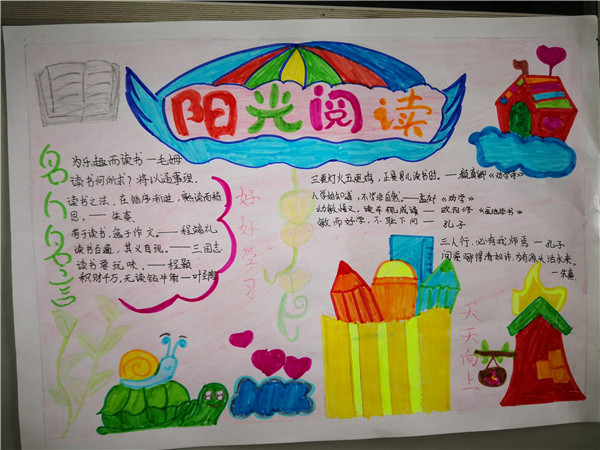 阳光阅读
名人名言
为乐趣而读书—毛姆
读书何所求？将以通事理.
读书之法，在循序而渐进，熟读而精
思.——朱熹
劳于读书，逸于作文。——程端礼
读书百遍，其义自现。——三国志
读书要玩味.——程颢
积财千万，无过读书
好好学习
三更灯火五更鸡，正是男儿读书时。——颜真卿《劝学诗》
人学始知道，不学非自然。——孟郊《劝学》
——欧阳修
敏而好学，不耻下问——孔子
三人行，必有我师焉—孔子
问渠那得清如许，为有源头活水来。
—朱熹
天天向上